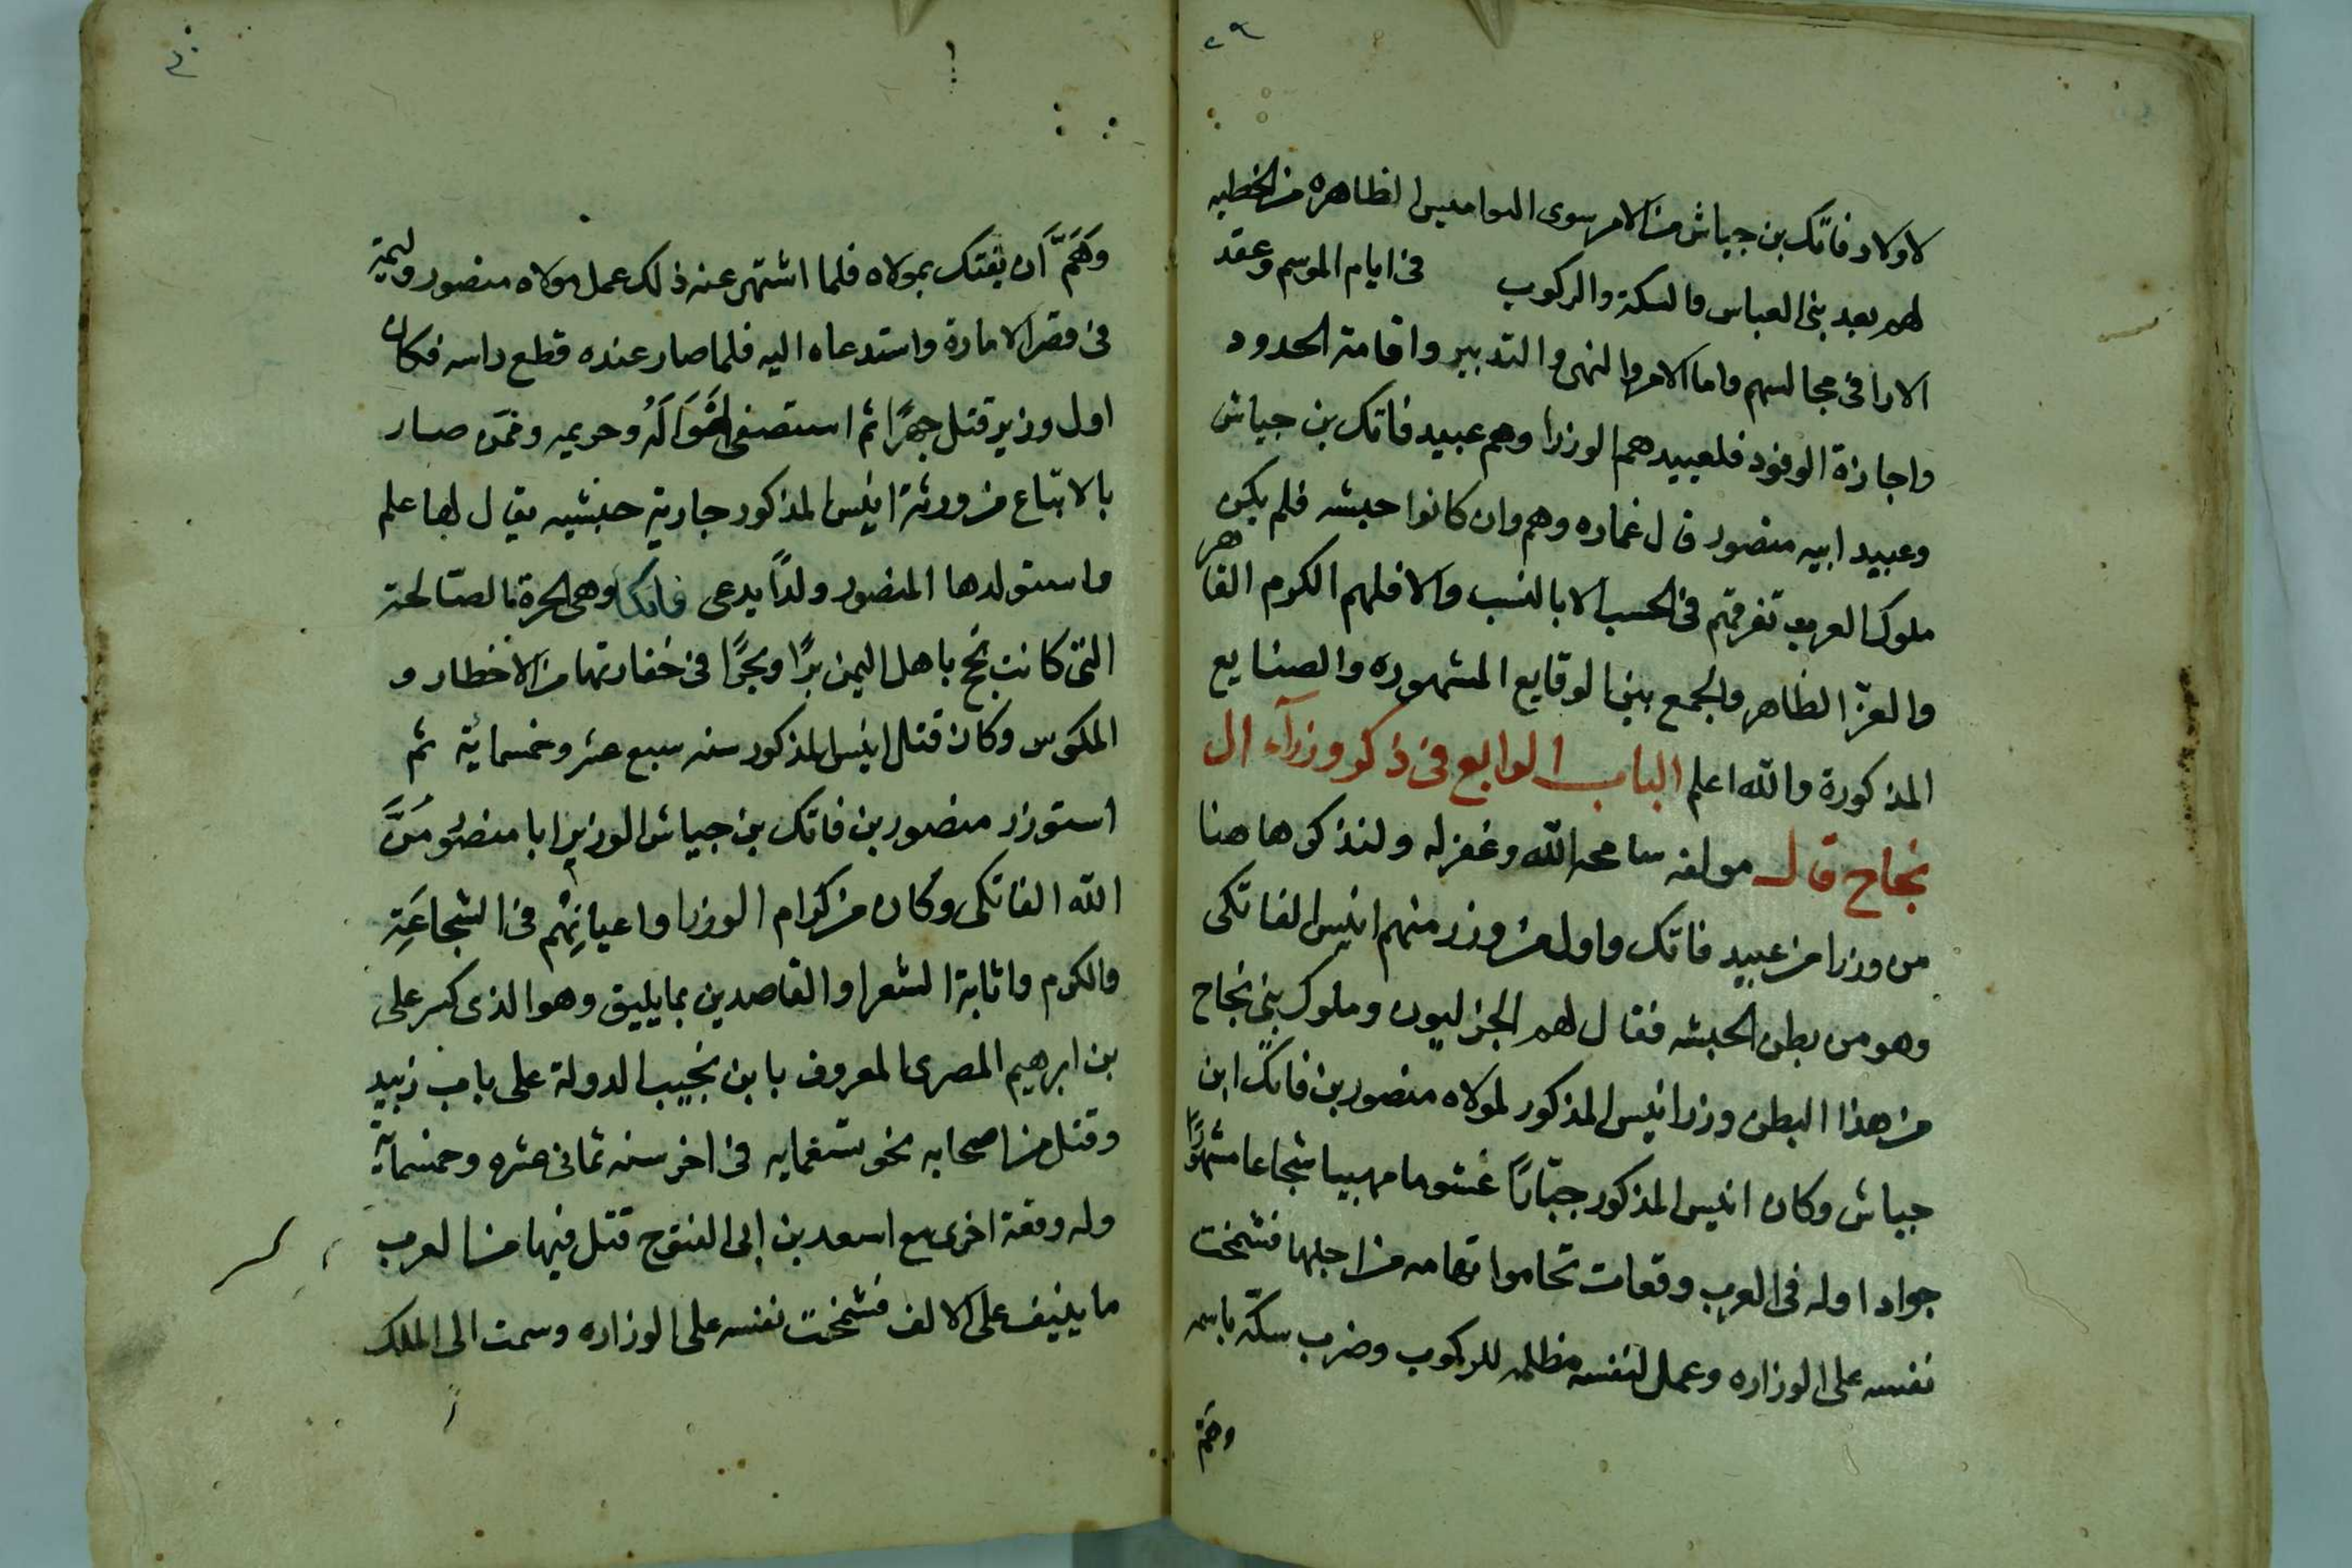 ٢٩
لاولاد فاتك بن جياش من الامر سوى النواميس الظاهره من الخطبه
لهم بعد بنى العباس والسكة والركوب في ايام الموسم وعقد
الارا في مجالسهم واما الامر والنهى والتدبير واقامة الحدود
واجازة الوفود فلعبيدهم الوزرا وهم عبيد فاتك بن جياش
وعبيد ابيه منصور قال عماره وهم وان كانوا حبشه فلم يكن
ملوك العرب تفوقهم في الحسب الا بالنسب والا فلهم الكرم القاهر
والعز الظاهر والجمع بين الوقايع المشهوره والصنايع
المذكورة والله اعلم الباب الرابع في ذكر وزرآء ال
نجاح قال مولفه سامحه الله وغفر له ولنذكر هاهنا
من وزرا من عبيد فاتك واول من وزر منهم انيس الفاتكى
وهو من بطن الحبشه فقال لهم الجزليون وملوك بنى نجاح
من هذا البطن وزر انيس المذكور لمولاه منصور بن فاتك ابن
جياش وكان انيس المذكور جبّارًا غشوما مهيبا شجاعا مشهورًا
جوادا وله في العرب وقعات تحاموا تهامه من اجلها فشمخت
نفسه على الوزاره وعمل لنفسه مظلمه للركوب وضرب سكّة باسمه
وهمّ
٣٠
وَهَمَّ اَن يفتك بمولاه فلما اشتهر عنه ذلك عمل مولاه منصور وليمة
في قصر الامارة واستدعاه اليه فلما صار عنده قطع راسه فكان
اول وزير قتل جهرًا ثم استصفى امْوَالَهُ وحريمه وممّن صار
بالابتاع من ورثة انيس المذكور جارية حبشيه يقال لها علم
فاستولدها المنصور ولدًا يدعى فاتكا وهى الحرة الصّالحة
التى كانت تحج باهل اليمن برًا وبحرًا في خفارتها من الاخطار و
المكوس وكان قتل انيس المذكور سنه سبع عشر وخمسماية ثم
استوزر منصور بن فاتك بن جياش الوزير ابا منصور مَنَّ
الله الفاتكى وكان من كرام الوزرا واعيانِهم في الشجاعَةِ
والكرم واثابة الشعرا والقاصدين بما يليق وهو الذى كسر على
بن ابرهيم المصرى المعروف بابن نجيب الدولة على باب زبيد
وقتل من اصحابه نحو ستغمايه في اخر سنه ثمانى عشره وخمسماية
وله وقعة اخرى مع اسعد بن ابى الفتوح قتل فيها من العرب
ما ينيف على الالف فشمخت نفسه على الوزاره وسمت الى الملك